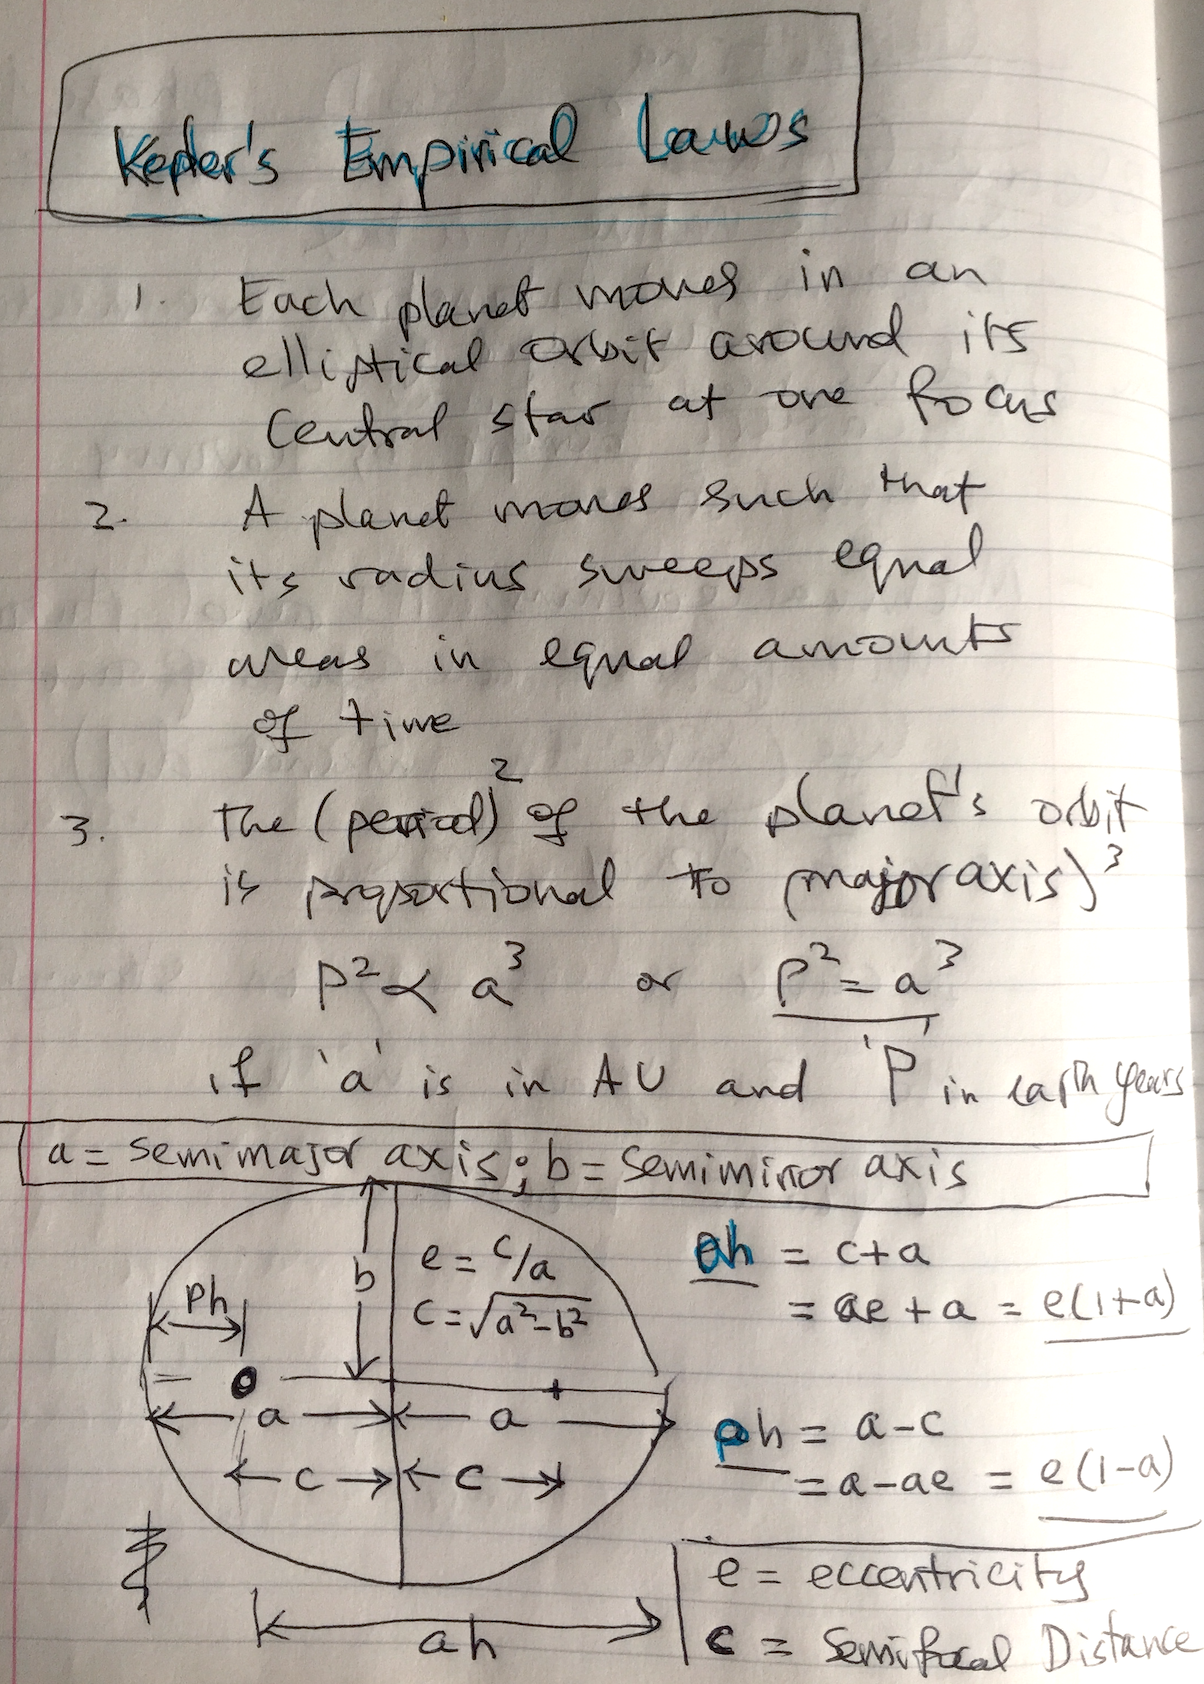 Kepler's Empirical Laws
1. Each planet moves in an
elliptical orbit around its
Central star at one focus
2. A planet moves such that
its radius sweeps equal
areas in equal amounts
of time
3. The (period)² of the planet's orbit
is proportional to (major axis)³
P² ∝ a³ or P² = a³
if 'a' is in AU and 'P' in earth years
a = semimajor axis; b = semiminor axis
e = c/a
c = √a²-b²
b
Ph
a a
c c
ah
ah = c+a
= ae + a = e(1+a)
ph = a-c
= a-ae = e(1-a)
e = eccentricity
c = Semifocal Distance